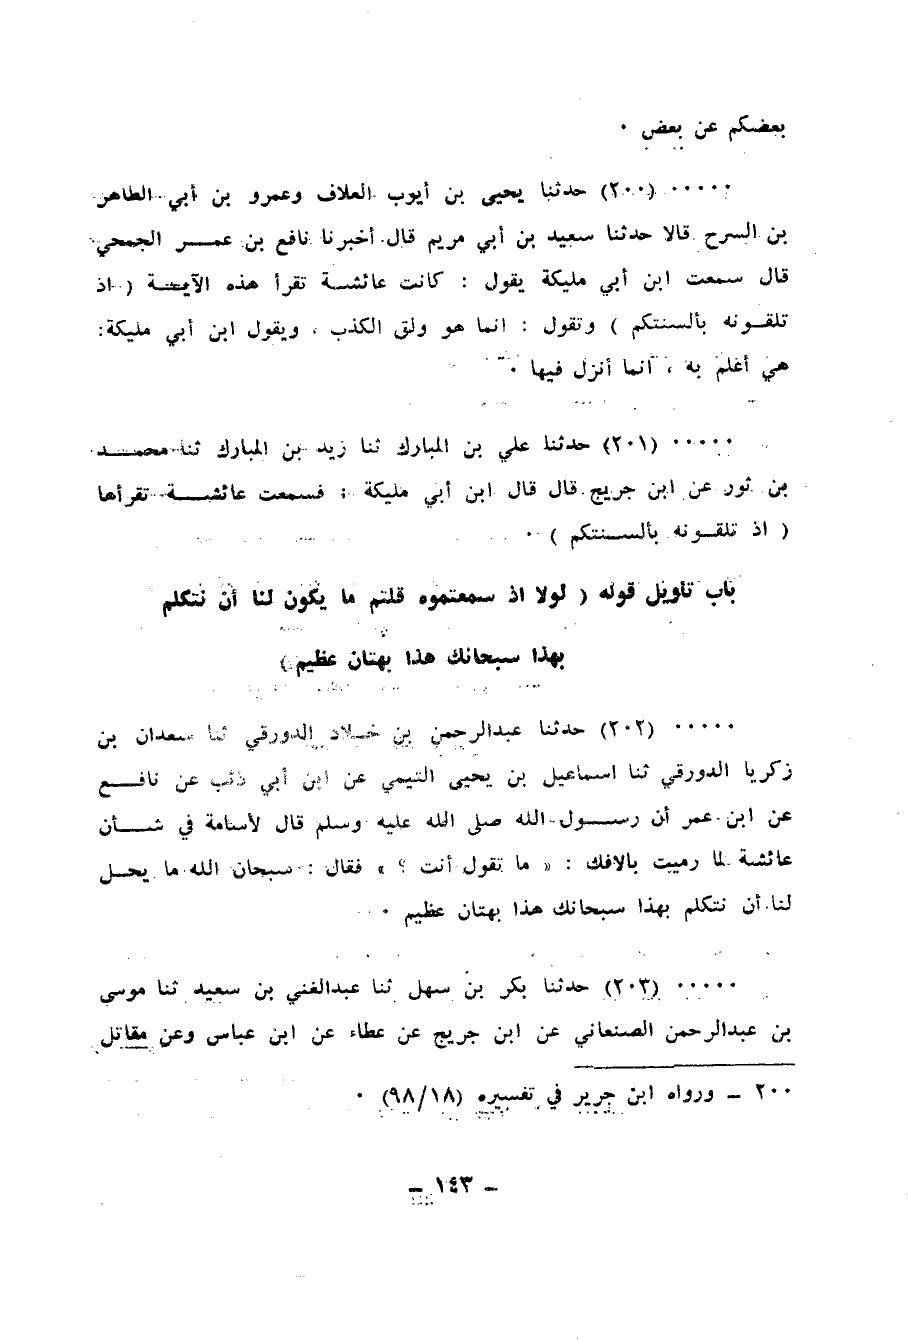 بعضكم عن بعض ٠
٠٠٠٠٠ (٢٠٠) حدثنا يحيى بن أيوب العلاف وعمرو بن أبي الطاهر
بن السرح قالا حدثنا سعيد بن أبي مريم قال أخبرنا نافع بن عمـــر الجمحي
قال سمعت ابن أبي مليكة يقول : كانت عائشـة تقرأ هذه الآيـة ( اذ
تلقـونه بألسنتكم ) وتقول : انما هو ولق الكذب ، ويقول ابن أبي مليكة:
هي أعلم به ، انما أنزل فيها ٠
٠٠٠٠٠ (٢٠١) حدثنا علي بن المبارك ثنا زيد بن المبارك ثنا محمـــد
بن ثور عن ابن جريج قال قال ابن أبي مليكة : فسمعت عائشـــة تقرأها
( اذ تلقـونه بألسـنتكم ) ٠
باب تأويل قوله ( لولا اذ سمعتموه قلتم ما يكون لنا أن نتكلم
بهذا سبحانك هذا بهتان عظيم )
٠٠٠٠٠ (٢٠٢) حدثنا عبدالرحمن بن خـلاد الدورقي ثنا سعدان بن
زكريا الدورقي ثنا اسماعيل بن يحيى التيمي عن ابن أبي ذئب عن نافـــع
عن ابن عمر أن رســـول الله صلى الله عليه وسلم قال لأسامة في شـــأن
عائشة لما رميت بالافك : « ما تقول أنت ؟ » فقال : سبحان الله ما يحـل
لنا أن نتكلم بهذا سبحانك هذا بهتان عظيم ٠
٠٠٠٠٠ (٢٠٣) حدثنا بكر بن سهل ثنا عبدالغني بن سعيد ثنا موسى
بن عبدالرحمن الصنعاني عن ابن جريج عن عطاء عن ابن عباس وعن مقاتل
٢٠٠ ــ ورواه ابن جرير في تفسيره (٩٨/١٨) ٠
ــ ١٤٣ ــ